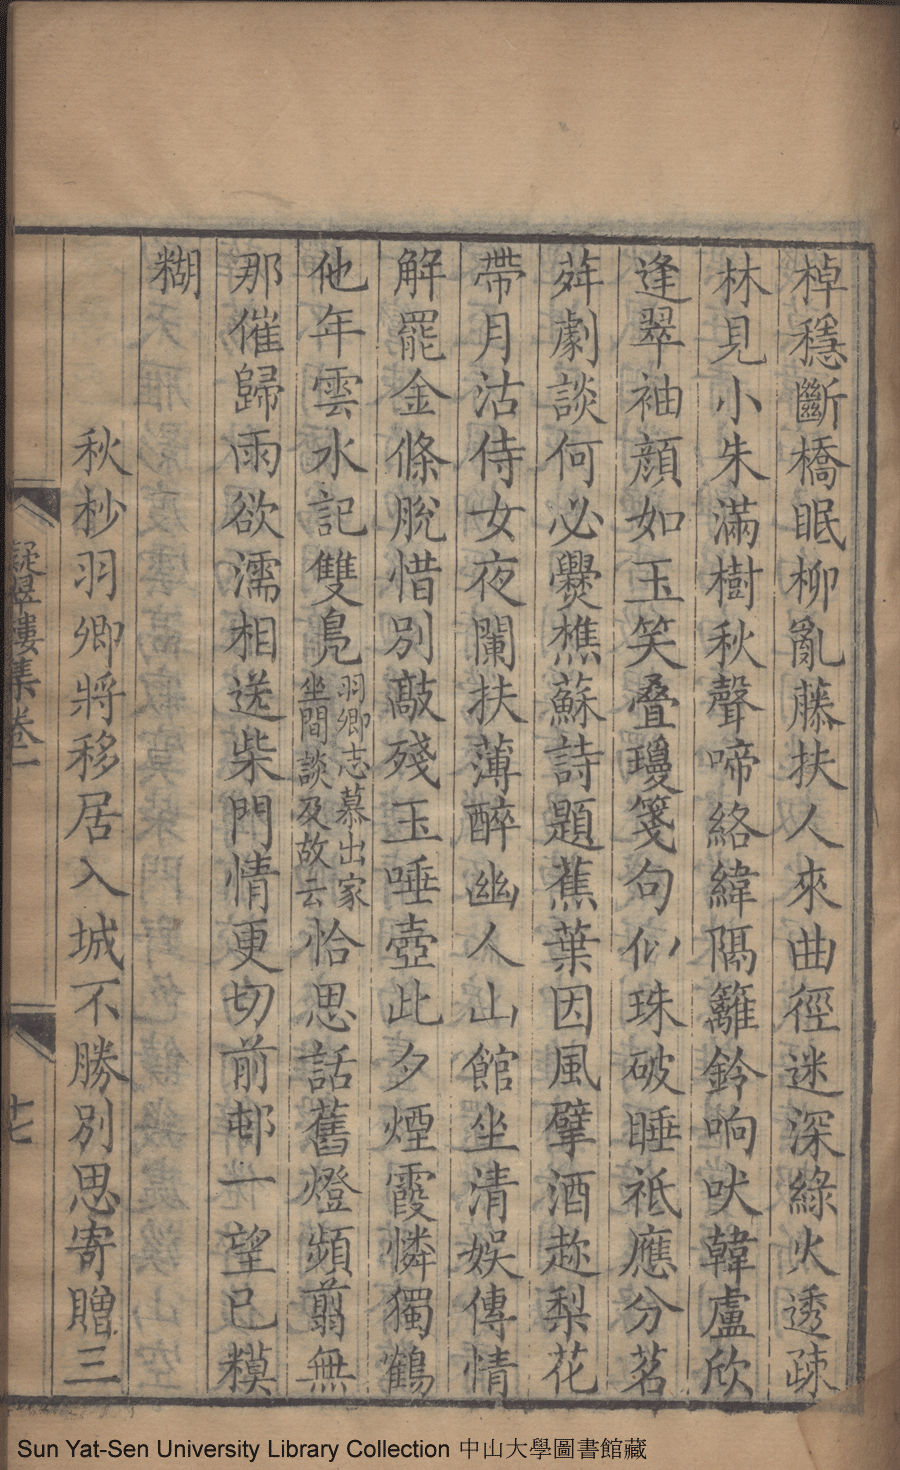 棹穩斷橋眠柳亂藤扶人來曲徑迷深綠火透疎
林見小朱滿樹秋聲啼絡緯隔籬鈴响吠韓盧欣
逢翠袖顏如玉笑叠瓊箋句似珠破睡祗應分茗
荈劇談何必爨樵蘇詩題蕉葉因風擘酒趂梨花
帶月沽侍女夜闌扶薄醉幽人山館坐清娛傳情
解罷金條脫惜別敲殘玉唾壺此夕煙霞憐獨鶴
他年雲水記雙鳧羽卿志慕出家坐間談及故云恰思話舊燈頻翦無
那催歸雨欲濡相送柴門情更切前邨一望已糢
糊
秋杪羽卿將移居入城不勝別思寄贈三
疑墅樓集卷一
十七
Sun Yat-Sen University Library Collection 中山大學圖書館藏